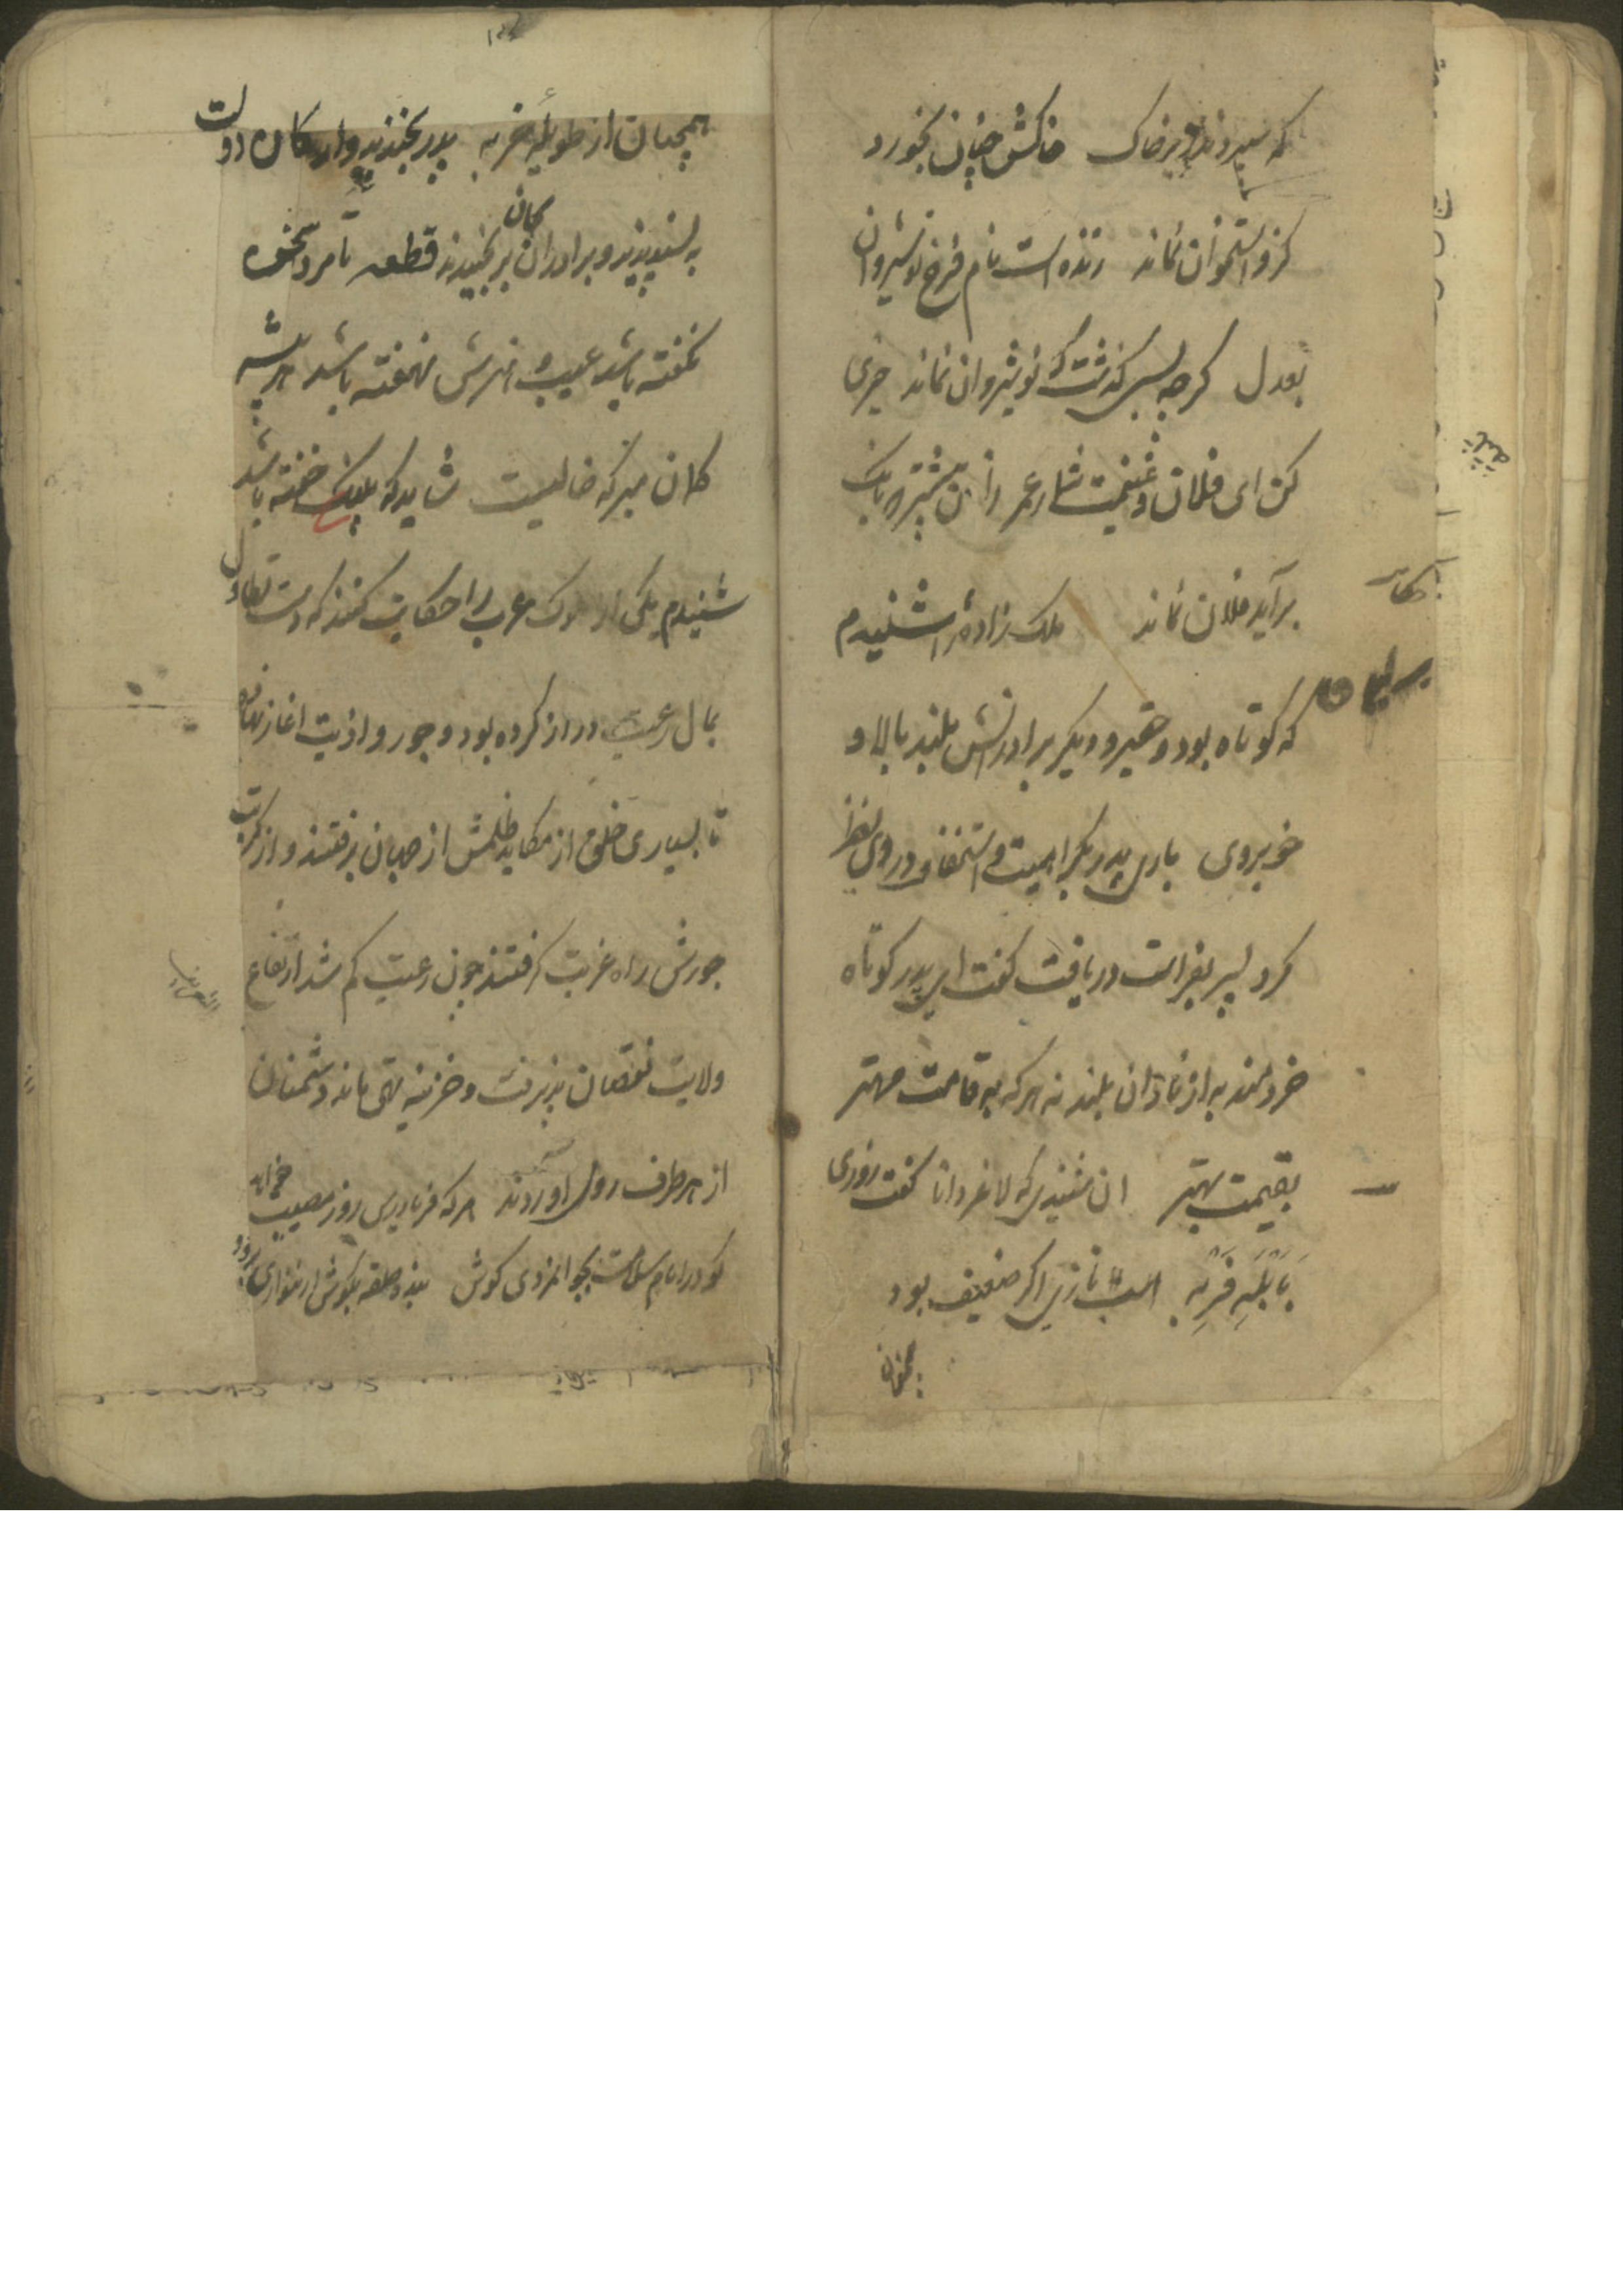 که سپردند زیر خاک خاکش چنان بخورد
کزو استخوان نماند زنده است نام فرخ نوشیروان
بعدل گرچه بسی گذشت که نوشیروان نماند خیری
کن ای فلان و غنیمت شمار عمر زان پیشتر که بانک
بر آید فلان نماند ملک زاده را شنیدم
که کوتاه بود و حقیر و دیگر برادرانش بلند بالا و
خوبروی باری پدر بکراهیت و استحقار در وی نظر
کرد پسر بفراست دریافت گفت ای پدر کوتاه
خردمند به از نادان بلند نه هر که به قامت مهتر
بقیمت بهتر ان شنیدی که لاغر دانا گفت روزی
بابلهِ فربه اسب تازی اگر ضعیف بود
همچنان
همچنان از طویلهٔ خر به پدر بخندید و ارکان دولت
به پسندیدند و برادران بجان برنجیدند قطعه تا مرد سخن
نگفته باشد عیب و هنرش نهفته باشد هر بیشه
گمان مبر که خالیست شاید که پلنگ خفته باشد
شنیدم یکی از ملوک عرب را حکایت کنند که دست تطاول
بمال رعیت دراز کرده بود و جور و اذیت اغاز نهاده
تا بسیاری خلق از مکاید ظلمش از جهان برفتند و از کربت
جورش راه غربت گرفتند چون رعیت کم شد ارتفاع
ولایت نقصان پذیرفت و خزینه تهی ماند و دشمنان
از هر طرف روی آوردند هر که فریادرس روز مصیبت خواهد
گو در ایام سلامت بجوانمردی کوش بنده حلقه بگوش ار ننوازی برود